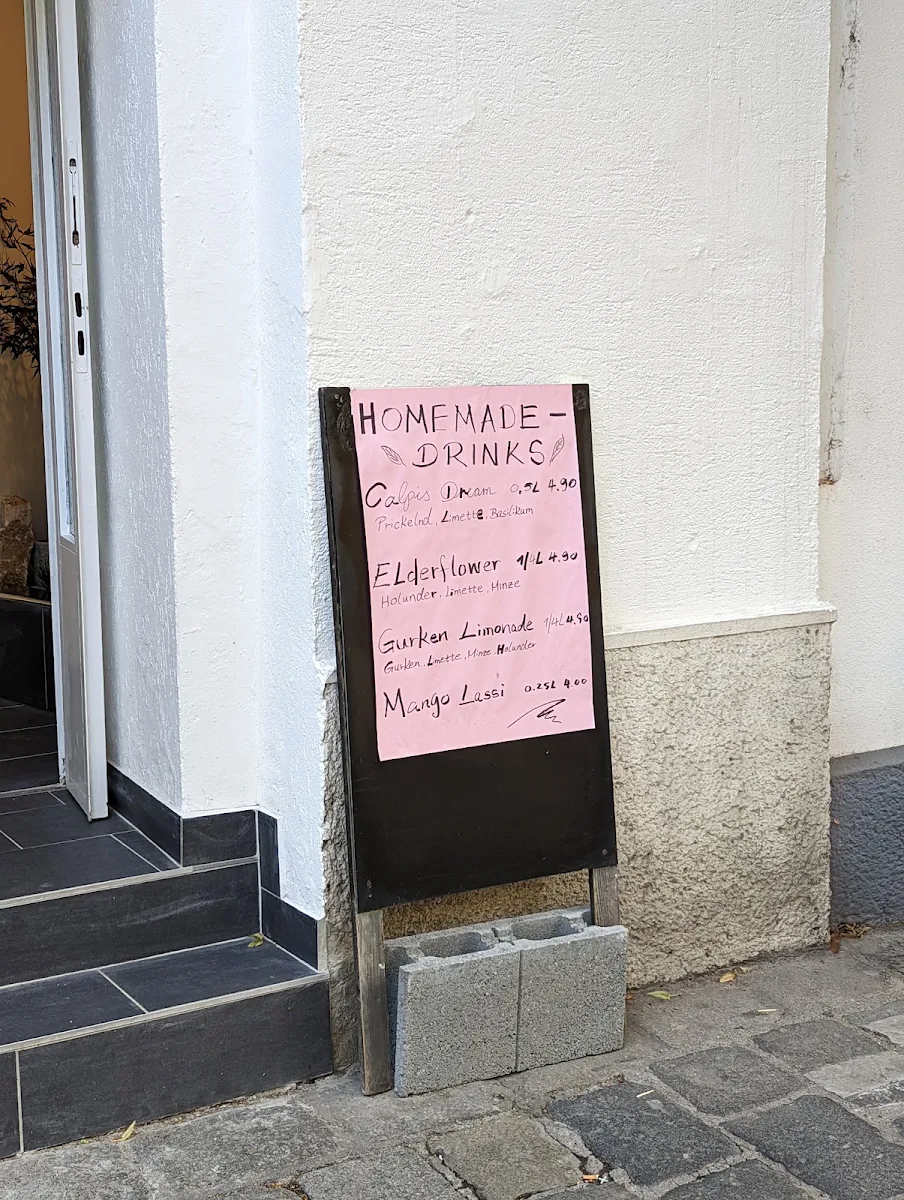 HOMEMADE-
DRINKS
Calpis Dream 0,5L 4.90
Prickelnd, Limette, Basilikum
ELderflower 1/4L 4.90
Holunder, Limette, Minze
Gurken Limonade 1/4L 4.90
Gurken, Limette, Minze, Holunder
Mango Lassi 0.25L 4.00